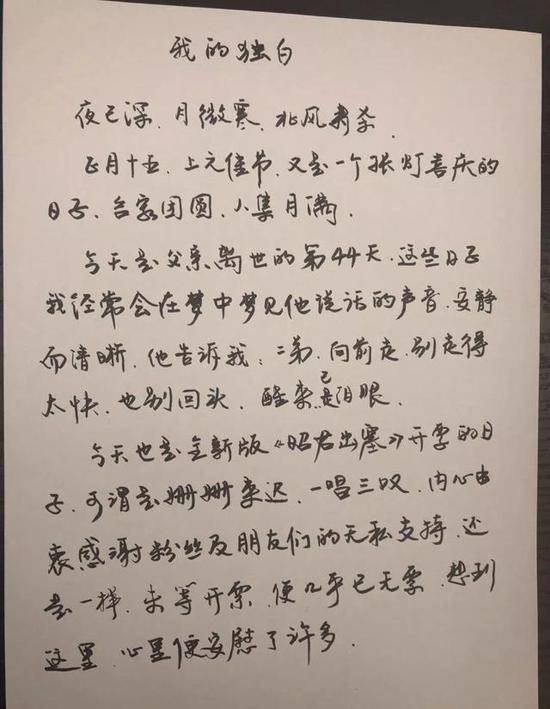 我的独白
夜已深、月微寒、北风肃杀、
正月十五、上元佳节、又是一个张灯喜庆的
日子、合家团圆、人集月满、
今天是父亲离世的第44天、这些日子
我经常会在梦中梦见他说话的声音、安静
而清晰、他告诉我：二弟、向前走、别走得
太快、也别回头、醒来已是泪眼、
今天也是全新版《昭君出塞》开票的日
子、可谓是姗姗来迟、一唱三叹、内心由
衷感谢粉丝及朋友们的无私支持、还
是一样、未等开票、便几乎已无票、想到
这里、心里便安慰了许多、